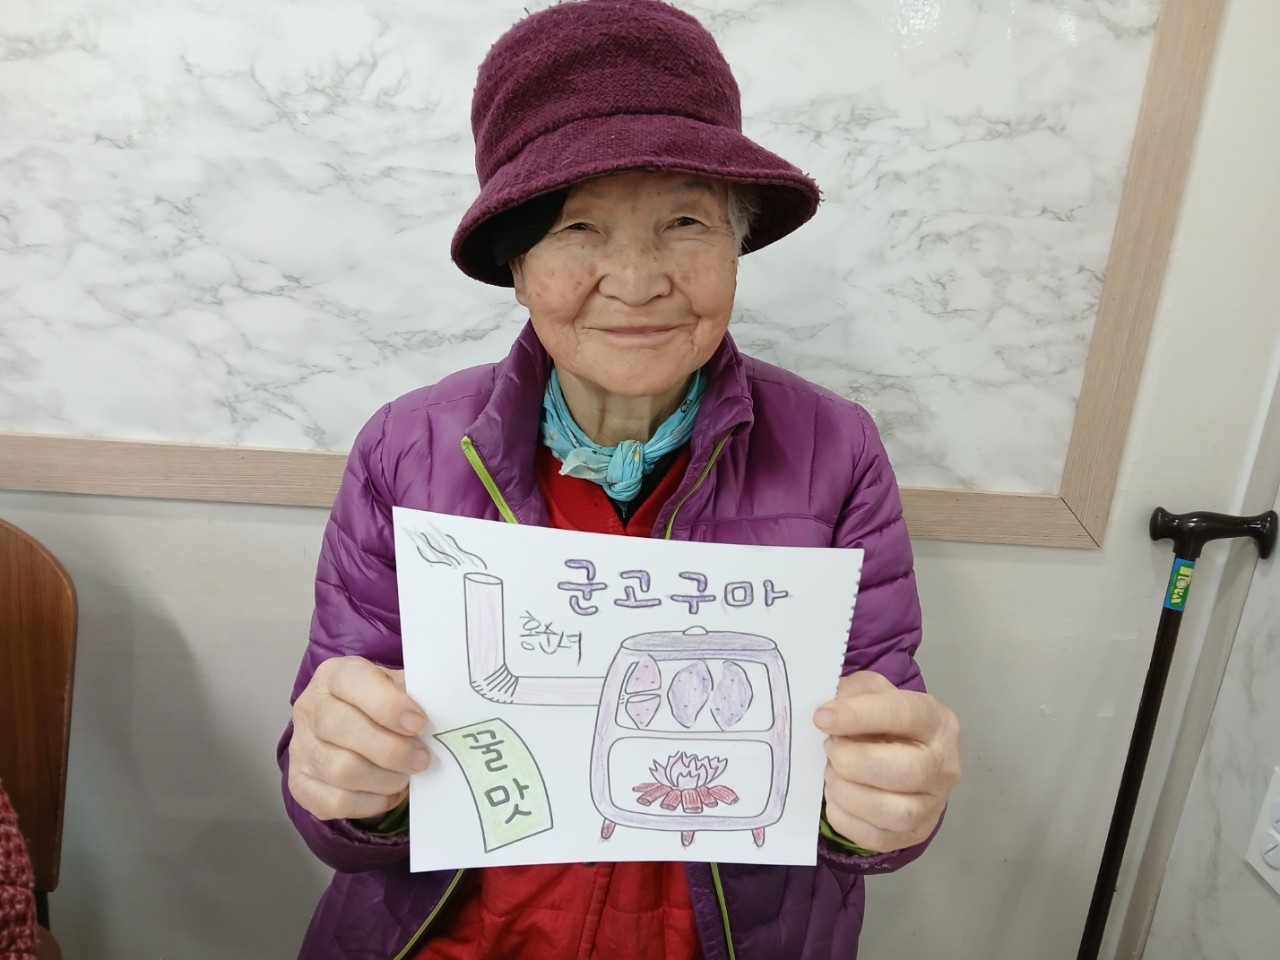 군고구마
홍순녀
꿀
맛